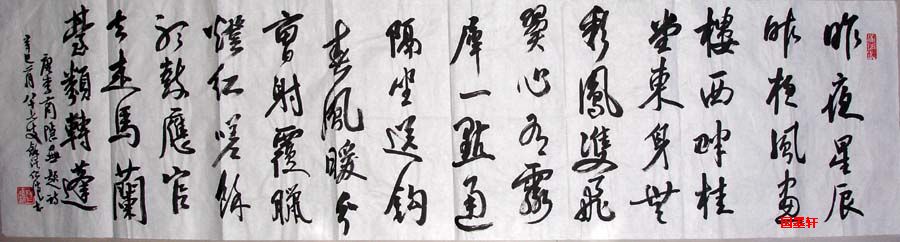 昨夜星辰
昨夜風画
樓西畔桂
堂東身無
彩鳳雙飛
翼心有靈
犀一點通
隔坐送鈎
春風暖分
曹射覆臘
燈紅嗟餘
聽鼓應官
去走馬蘭
臺類轉蓬
唐李商隱無題詩
辛巳
国墨轩